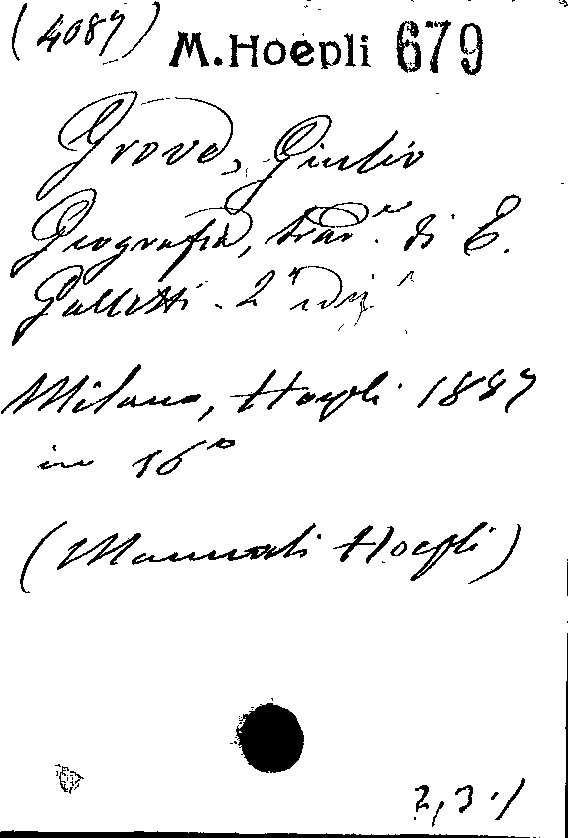 (4087) M.Hoepli 679
Grove, Giulio
Geografia, trad.ne di E.
Galletti - 2ª ediz.e
Milano, Hoepli 1887
in 16°
(Manuali Hoepli)
2,3 ·/